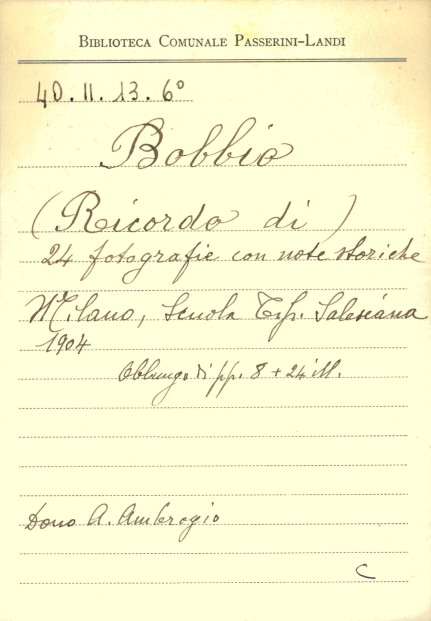 BIBLIOTECA COMUNALE PASSERINI-LANDI
40.II.13.6°
Bobbio
(Ricordo di)
24 fotografie con note storiche
Milano, Scuola Tip. Salesiana
1904
Oblungo di pp. 8 + 24 ill.
Dono A. Ambrogio
C